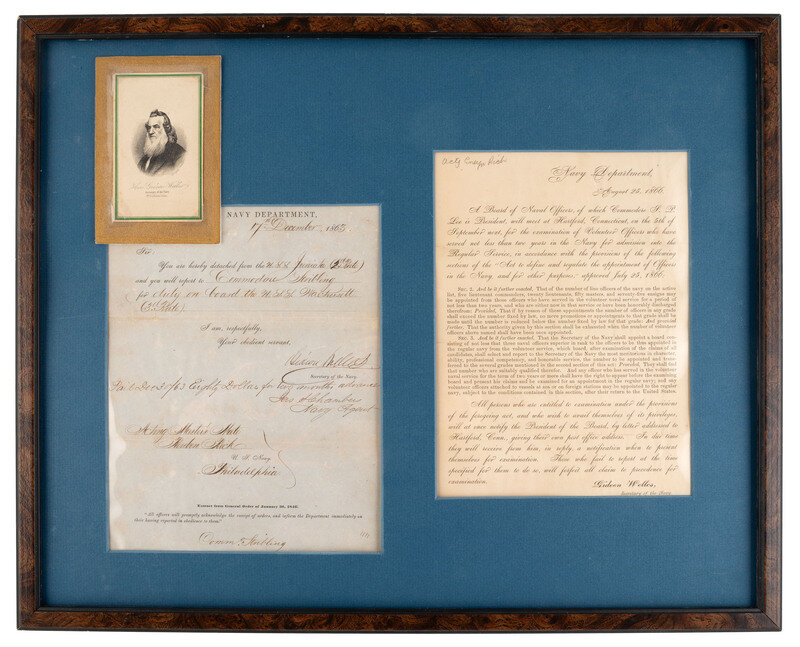 Hon. Gideon Welles
Secretary of the Navy
NAVY DEPARTMENT,
17th December 1863
Sir:
You are hereby detached from the U.S.S. (2d Rate)
and you will report to Commodore Stribling
for duty on board the U.S.S.
(3d Rate).
I am, respectfully,
Your obedient servant,
Gideon Welles
Secretary of the Navy.
Eighty Dollars for two months advance
Chambers
Navy Agent
Acting Master's Mate
Reuben Rich
U. S. Navy
Philadelphia
Extract from General Order of January 30, 1843.
"All officers will promptly acknowledge the receipt of orders, and inform the Department immediately on
their having reported in obedience to them."
Comm: Stribling
Actg Rich
Navy Department,
August 25, 1866.
A Board of Naval Officers, of which Commodore S. P.
Lee is President, will meet at Hartford, Connecticut, on the 5th of
September next, for the examination of Volunteer Officers who have
served not less than two years in the Navy for admission into the
Regular Service, in accordance with the provisions of the following
sections of the "Act to define and regulate the appointment of Officers
in the Navy, and for other purposes," approved July 25, 1866:
SEC. 2. And be it further enacted, That of the number of line officers of the navy on the active
list, five lieutenant commanders, twenty lieutenants, fifty masters, and seventy-five ensigns may
be appointed from those officers who have served in the volunteer naval service for a period of
not less than two years, and who are either now in that service or have been honorably discharged
therefrom: Provided, That if by reason of these appointments the number of officers in any grade
shall exceed the number fixed by law, no more promotions or appointments to that grade shall be
made until the number is reduced below the number fixed by law for that grade: And provided
further, That the authority given by this section shall be exhausted when the number of volunteer
officers above named shall have been once appointed.
SEC. 3. And be it further enacted, That the Secretary of the Navy shall appoint a board con-
sisting of not less than three naval officers superior in rank to the officers to be then appointed in
the regular navy from the volunteer service, which board, after examination of the claims of all
candidates, shall select and report to the Secretary of the Navy the most meritorious in character,
ability, professional competency, and honorable service, to the number to be appointed and trans-
ferred to the several grades mentioned in the second section of this act: Provided, They shall find
that number who are suitably qualified therefor. And any officer who has served in the volunteer
naval service for the term of two years or more shall have the right to appear before the examining
board and present his claims and be examined for an appointment in the regular navy; and any
volunteer officers attached to vessels at sea or on foreign stations may be appointed to the regular
navy, subject to the conditions contained in this section, after their return to the United States.
All persons who are entitled to examination under the provisions
of the foregoing act, and who wish to avail themselves of its privileges,
will at once notify the President of the Board, by letter addressed to
Hartford, Conn., giving their own post office address. In due time
they will receive from him, in reply a notification when to present
themselves for examination. Those who fail to report at the time
specified for them to do so, will forfeit all claim to precedence for
examination.
Gideon Welles,
Secretary of the Navy.